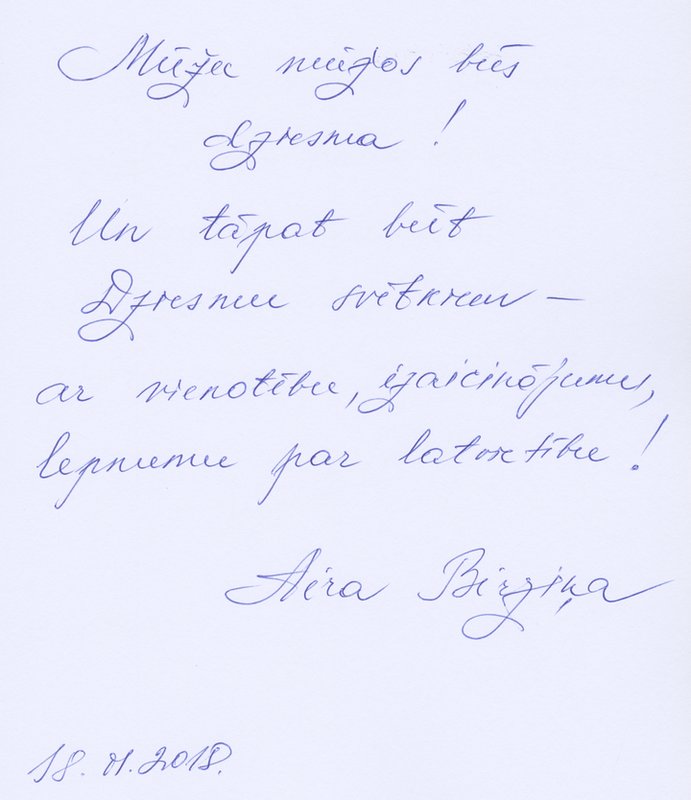 Mūžu mūžos būs
dziesma!
Un tāpat būt
Dziesmu svētkiem –
ar vienotību, izaicinājumu,
lepnumu par latvietību!
Aira Birziņa
18.11.2018.